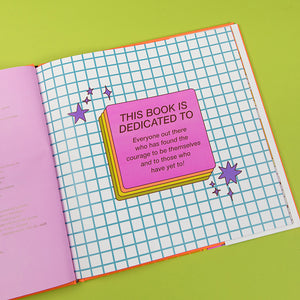 THIS BOOK IS
DEDICATED TO
Everyone out there
who has found the
courage to be themselves
and to those who
have yet to!